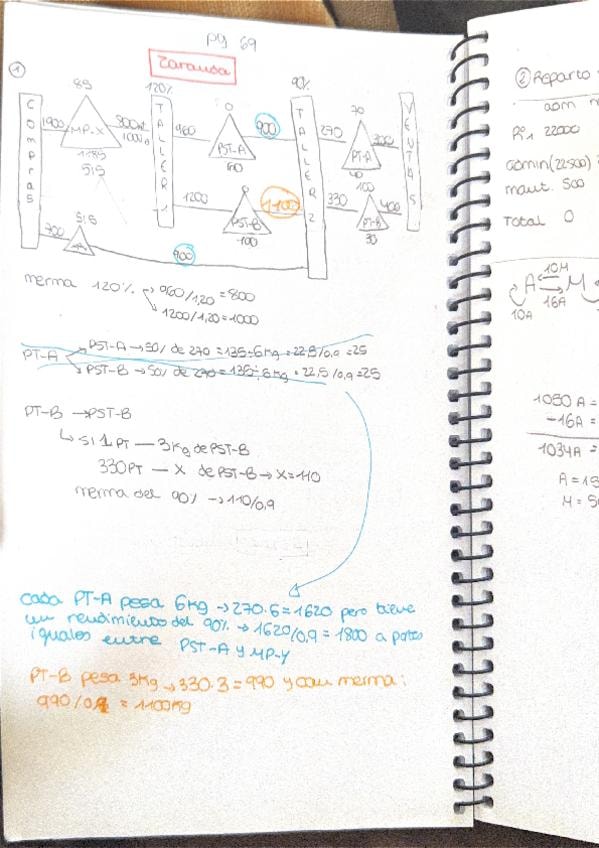 pg 69
①
Zarausa
COMPRAS
1900
85
MP-X
1185
800kg
1000g
120%
TALLER 1
960
0
PST-A
900
90%
TALLER 2
270
70
PT-A
40
300
VENTAS
515
1200
0
PST-B
100
1100
330
100
PT-B
30
400
700
515
900
merma 120% → 960/1,20 = 800
→ 1200/1,20 = 1000
PT-A → PST-A → 50% de 270 = 135÷6kg = 22,5/0,9 = 25
→ PST-B → 50% de 270 = 135÷6kg = 22,5/0,9 = 25
PT-B → PST-B
↳ si 1 PT — 3kg de PST-B
330PT — X de PST-B → X = 110
merma del 90% → 110/0,9
cada PT-A pesa 6kg → 270·6 = 1620 pero tiene
un rendimiento del 90% → 1620/0,9 = 1800 a partes
iguales entre PST-A y MP-Y
PT-B pesa 3kg → 330·3 = 990 y con merma:
990/0,9 = 1100kg
② Reparto
22000
admin (22500)
maut. 500
Total 0
10M
A M
16A
10A
1050 A =
-16A =
1034A =